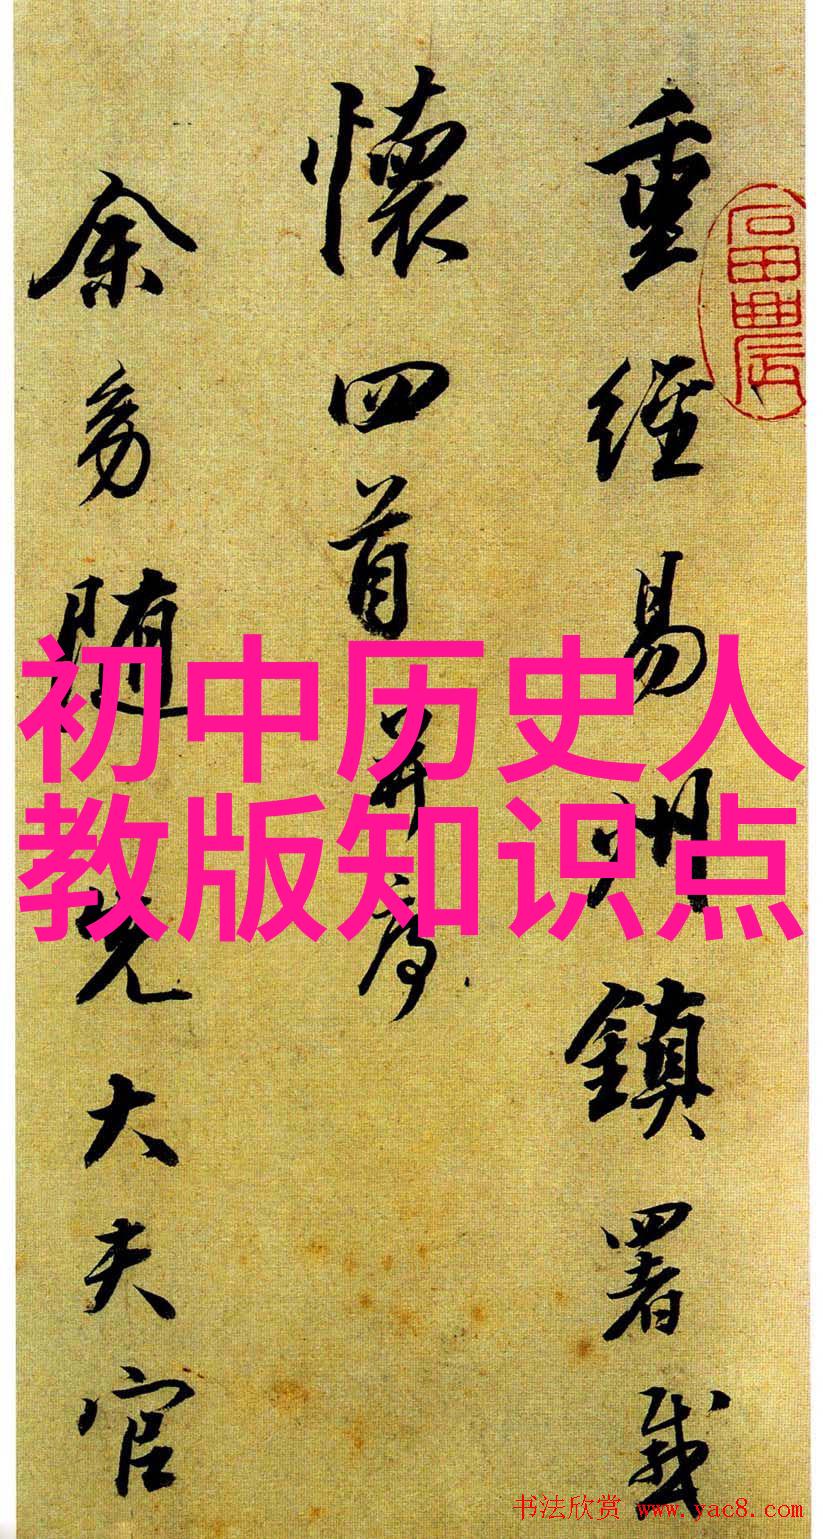 重經易州鎮署感
懷四首并序
余易随先大夫官
初中历史人
教版知识点
书法欣赏 www.yac8.com